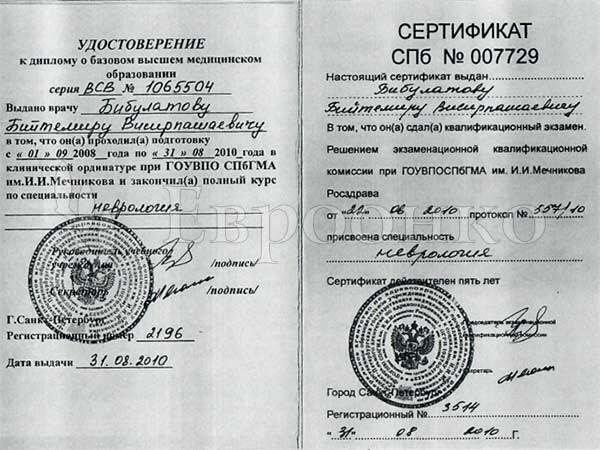 УДОСТОВЕРЕНИЕ
к диплому о базовом высшем медицинском
образовании
серия ВСВ № 1065504
Выдано врачу Бибулатову
Бийтемиру Висирпашаевичу
в том, что он(а) проходил(а) подготовку
с «01» 09 2008 года по «31» 08 2010 года в
клинической ординатуре при ГОУВПО СПбГМА
им.И.И.Мечникова и закончил(а) полный курс
по специальности
неврология
Руководитель учебного
учреждения /подпись/
Секретарь /подпись/
Г.Санкт-Петербург
Регистрационный номер 2196
Дата выдачи 31.08.2010
СЕРТИФИКАТ
СПб № 007729
Настоящий сертификат выдан
Бибулатову
Бийтемиру Висирпашаевичу
В том, что он(а) сдал(а) квалификационный экзамен.
Решением экзаменационной квалификационной
комиссии при ГОУВПОСПбГМА им. И.И.Мечникова
Росздрава
от "22" 06 2010 протокол № 557/10
присвоена специальность
неврология
Сертификат действителен пять лет
Председатель экзаменационной
квалификационной комиссии
Секретарь
Город Санкт-Петербург
Регистрационный № 3514
"31" 08 2010 г.